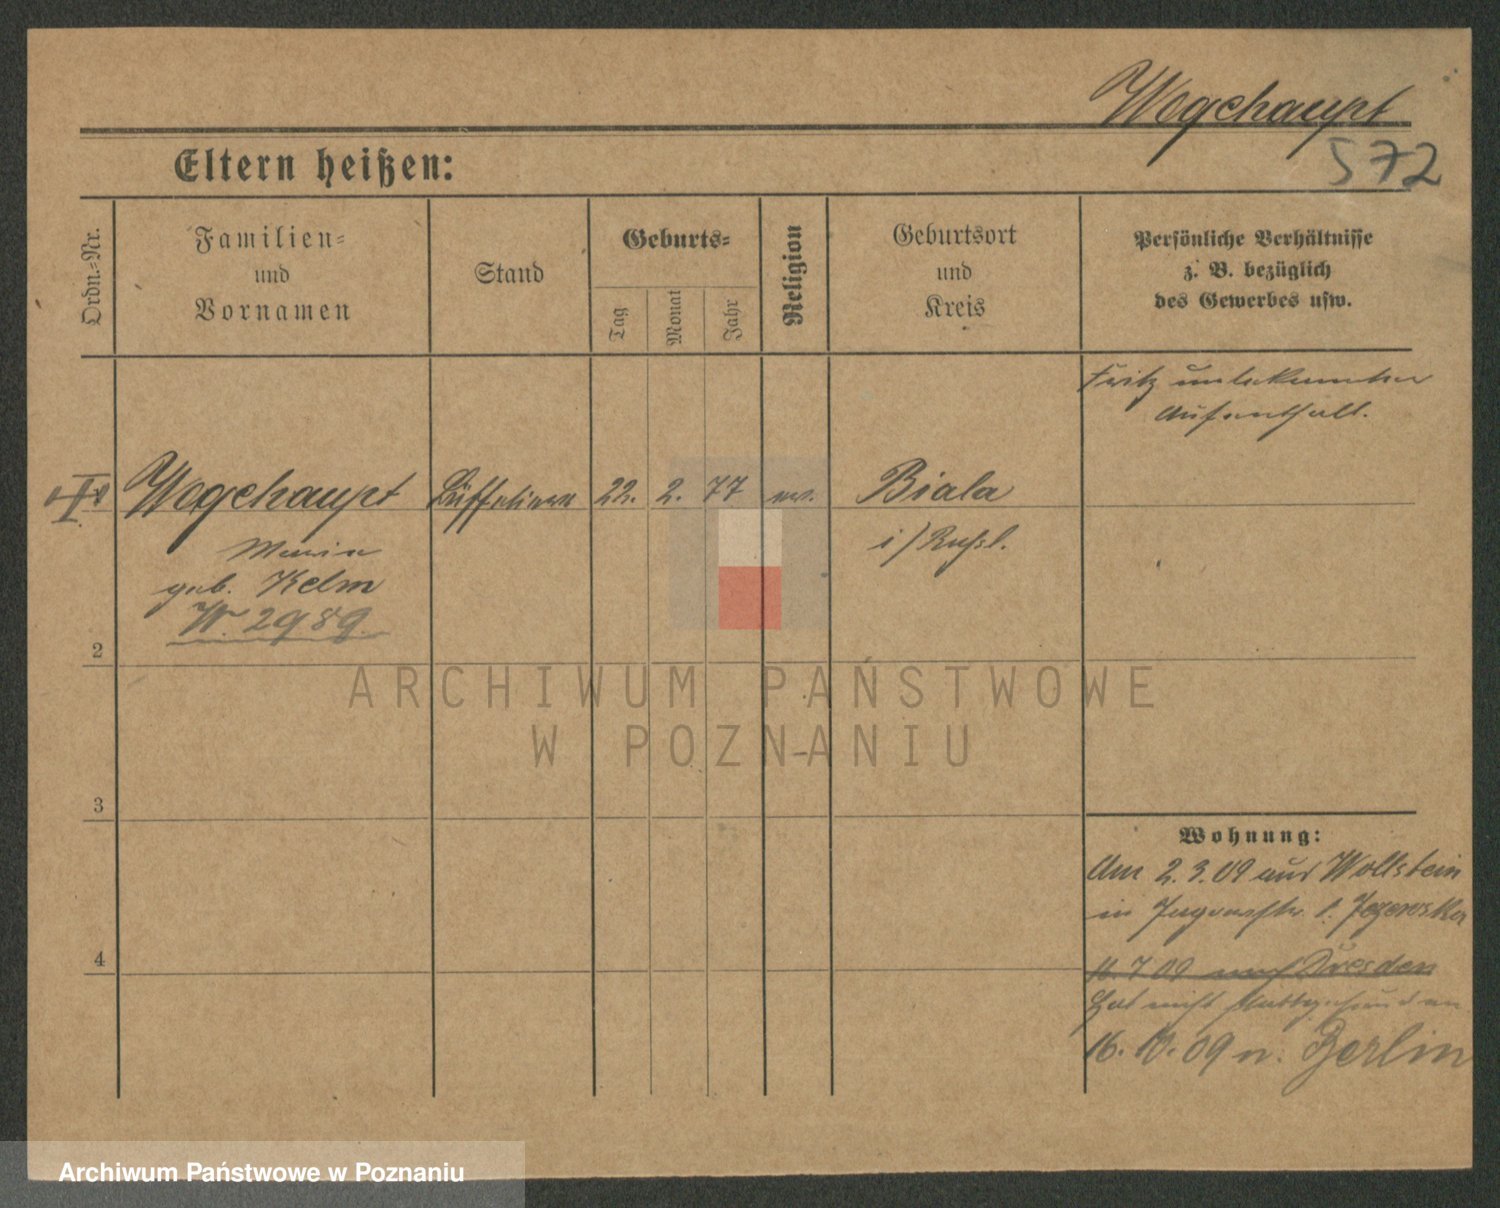 Wogehaupt
572
Eltern heißen:
Ordn.-Nr.
Familien-
und
Vornamen
Stand
Geburts-
Tag
Monat
Jahr
Religion
Geburtsort
und
Kreis
Persönliche Verhältnisse
z. B. bezüglich
des Gewerbes usw.
Fritz unbekannter
Aufenthalt.
Wogehaupt Büffetiere 22. 2. 77 ev. Biala
Maria i/Rußl.
geb. Kelm
W. 2989.
2
3
4
Wohnung:
Am 2.3.09 aus Wollstein
in 1. Jezewska
7 09 nach Dresden
hat nicht stattgefunden
16. 10. 09 n. Berlin
ARCHIWUM PAŃSTWOWE
W POZNANIU
Archiwum Państwowe w Poznaniu